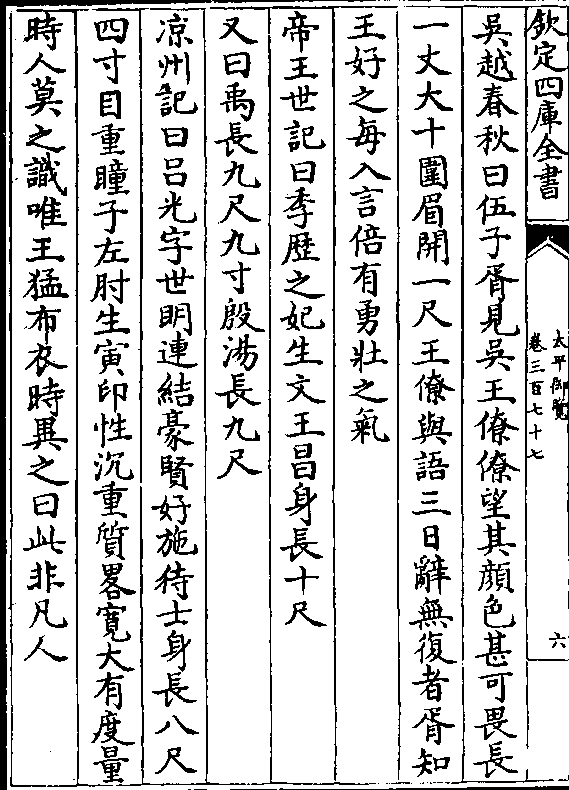 欽定四庫全書
太平御覽
卷三百七十七
六
吳越春秋曰伍子胥見吳王僚僚望其顔色甚可畏長
一丈大十圍眉間一尺王僚與語三日辭無復者胥知
王好之每入言倍有勇壯之氣
帝王世記曰季歴之妃生文王昌身長十尺
又曰禹長九尺九寸殷湯長九尺
凉州記曰呂光字世明連結豪賢好施待士身長八尺
四寸目重瞳子左肘生寅印性沉重質畧寛大有度量
時人莫之識唯王猛布衣時異之曰此非凡人